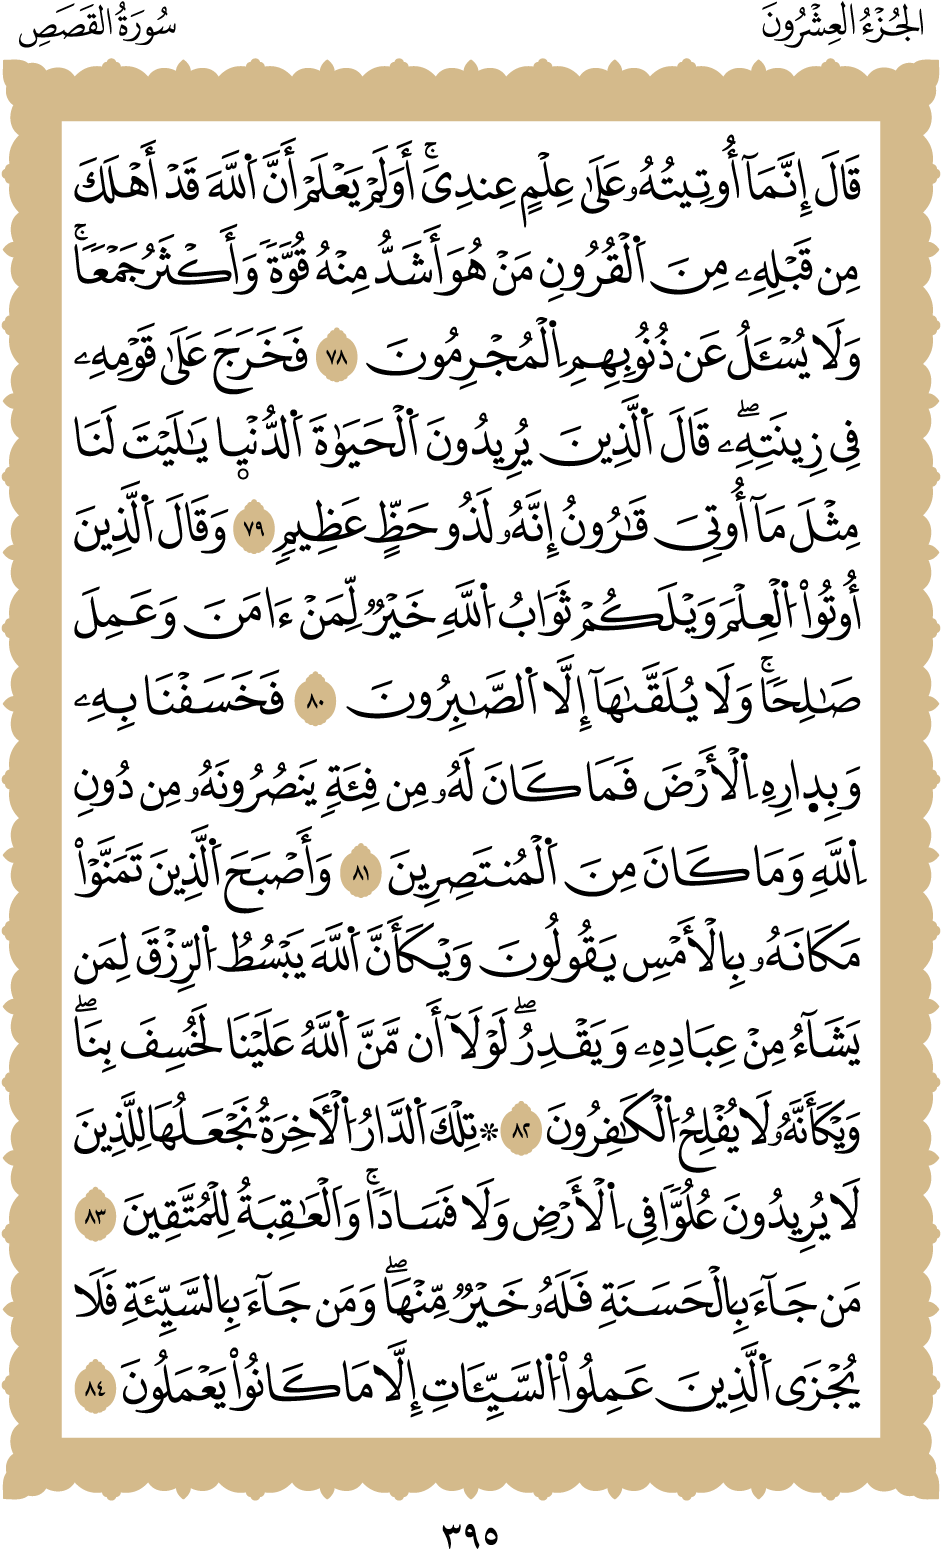 الجُزْءُ العِشْرُونَ
سُورَةُ القَصَصِ
قَالَ إِنَّمَآ أُوتِيتُهُۥ عَلَىٰ عِلْمٍ عِندِىَٓۚ أَوَلَمْ يَعْلَمْ أَنَّ اَ۬للَّهَ قَدْ أَهْلَكَ
مِن قَبْلِهِۦ مِنَ اَ۬لْقُرُونِ مَنْ هُوَ أَشَدُّ مِنْهُ قُوَّةً وَأَكْثَرُ جَمْعًاۚ
وَلَا يُسْـَٔلُ عَن ذُنُوبِهِمِ اِ۬لْمُجْرِمُونَ ٧٨ فَخَرَجَ عَلَىٰ قَوْمِهِۦ
فِى زِينَتِهِۦۖ قَالَ اَ۬لَّذِينَ يُرِيدُونَ اَ۬لْحَيَوٰةَ اَ۬لدُّنْي۪ا يَٰلَيْتَ لَنَا
مِثْلَ مَآ أُوتِىَ قَٰرُونُ إِنَّهُۥ لَذُو حَظٍّ عَظِيمٍ ٧٩ وَقَالَ اَ۬لَّذِينَ
أُوتُواْ اُ۬لْعِلْمَ وَيْلَكُمْ ثَوَابُ اُ۬للَّهِ خَيْرٌ لِّمَنْ ءَامَنَ وَعَمِلَ
صَٰلِحًاۚ وَلَا يُلَقَّىٰهَآ إِلَّا اَ۬لصَّٰبِرُونَ ٨٠ فَخَسَفْنَا بِهِۦ
وَبِد۪ارِهِ اِ۬لْأَرْضَ فَمَا كَانَ لَهُۥ مِن فِئَةٍ يَنصُرُونَهُۥ مِن دُونِ
اِ۬للَّهِ وَمَا كَانَ مِنَ اَ۬لْمُنتَصِرِينَ ٨١ وَأَصْبَحَ اَ۬لَّذِينَ تَمَنَّوْاْ
مَكَانَهُۥ بِالْأَمْسِ يَقُولُونَ وَيْكَأَنَّ اَ۬للَّهَ يَبْسُطُ اُ۬لرِّزْقَ لِمَن
يَشَآءُ مِنْ عِبَادِهِۦ وَيَقْدِرُۖ لَوْلَآ أَن مَّنَّ اَ۬للَّهُ عَلَيْنَا لَخُسِفَ بِنَاۖ
وَيْكَأَنَّهُۥ لَا يُفْلِحُ اُ۬لْكَٰفِرُونَ ٨٢ ۞ تِلْكَ اَ۬لدَّارُ اُ۬لْأٓخِرَةُ نَجْعَلُهَا لِلَّذِينَ
لَا يُرِيدُونَ عُلُوًّا فِى اِ۬لْأَرْضِ وَلَا فَسَادًاۚ وَالْعَٰقِبَةُ لِلْمُتَّقِينَ ٨٣
مَن جَآءَ بِالْحَسَنَةِ فَلَهُۥ خَيْرٌ مِّنْهَاۖ وَمَن جَآءَ بِالسَّيِّئَةِ فَلَا
يُجْزَى اَ۬لَّذِينَ عَمِلُواْ اُ۬لسَّيِّـَٔاتِ إِلَّا مَا كَانُواْ يَعْمَلُونَ ٨٤
٣٩٥